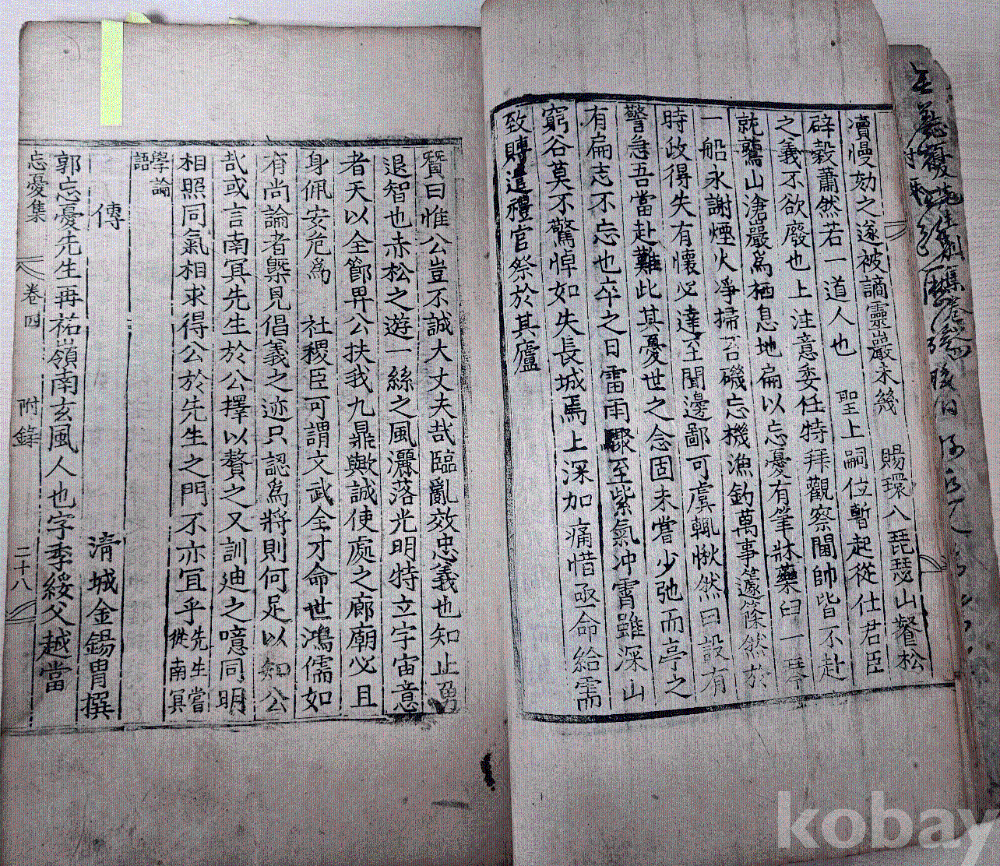 瀆慢劾之遂被謫靈巖未幾 賜環入琵瑟山餐松
辟穀蕭然若一道人也 聖上嗣位暫起從仕君臣
之義不欲廢也上注意委任特拜觀察閫帥皆不赴
就鷲山滄巖爲栖息地扁以忘憂有筆牀藥臼一琴
一船永謝煙火凈掃苔磯忘機漁釣萬事蘧篨然於
時政得失有懷必達至聞邊鄙可虞輒愀然曰設有
警急吾當赴難此其憂世之念固未嘗少弛而亭之
有扁志不忘也卒之日雷雨驟至紫氣冲霄雖深山
窮谷莫不驚悼如失長城焉上深加痛惜亟命給需
致賻遣禮官祭於其廬
贊曰惟公豈不誠大丈夫哉臨亂效忠義也知止勇
退智也赤松之遊一絲之風灑落光明特立宇宙意
者天以全節畀公扶我九鼎歟誠使處之廊廟必且
身佩安危爲 社稷臣可謂文武全才命世鴻儒如
有尚論者槩見倡義之迹只認爲將則何足以知公
哉或言南冥先生於公擇以贅之又訓迪之噫同明
相照同氣相求得公於先生之門不亦宜乎 先生嘗從南冥
學論語
傳
淸城金錫胄撰
郭忘憂先生再祐嶺南玄風人也字季綏父越當
忘憂集 卷四 附錄 二十八
kobay